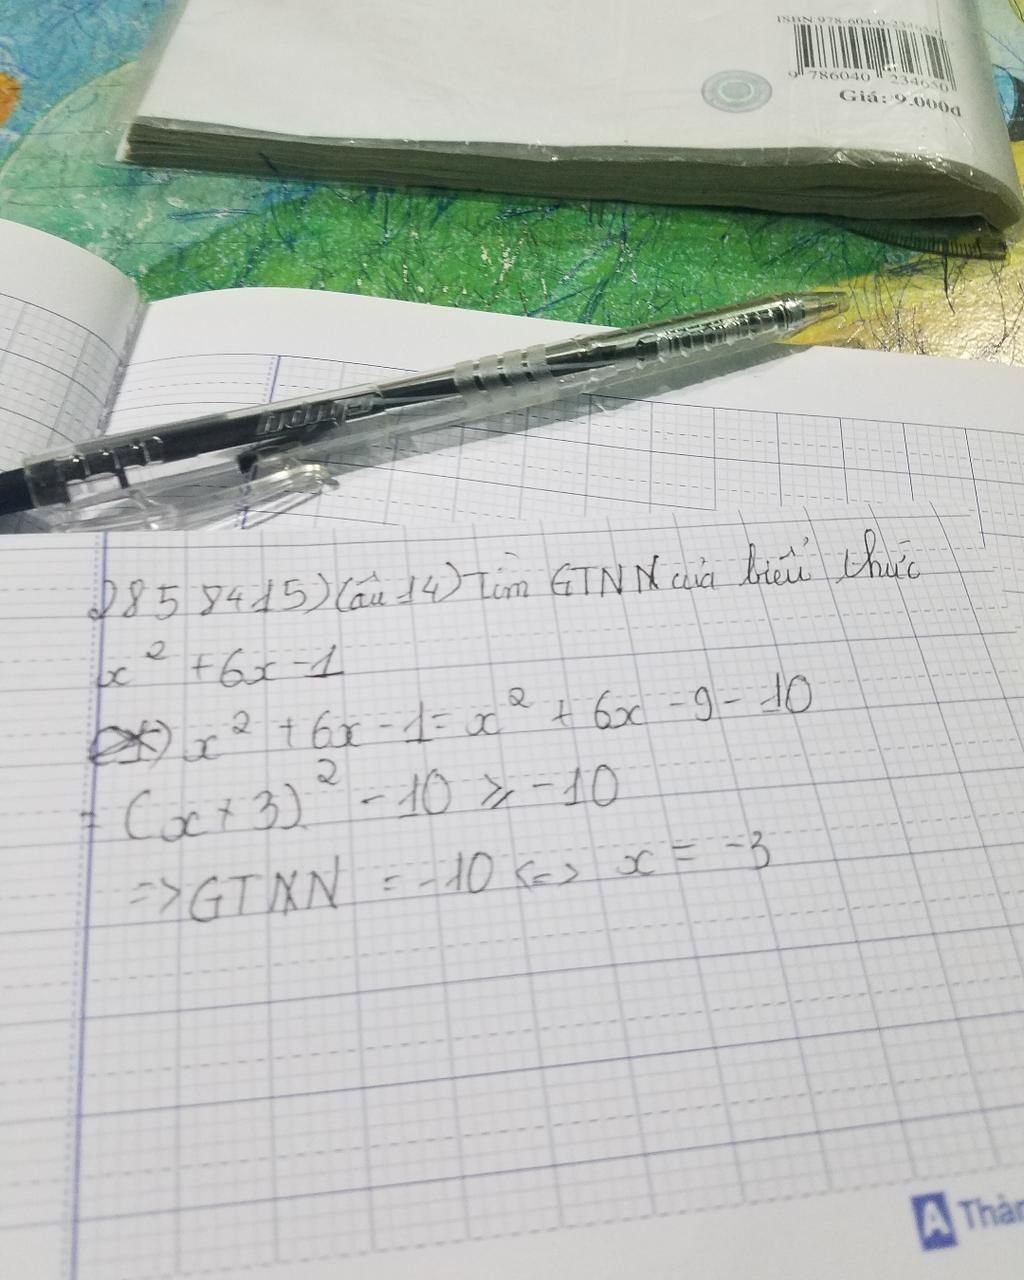 ISBN 978-604-0-23465-0
9 786040 234650
Giá: 9.000đ
2858415) Câu 14) Tìm GTNN của biểu thức
x² + 6x - 1
x² + 6x - 1 = x² + 6x - 9 - 10
= (x + 3)² - 10 ≥ -10
=> GTNN = -10 <=> x = -3
A Thàn